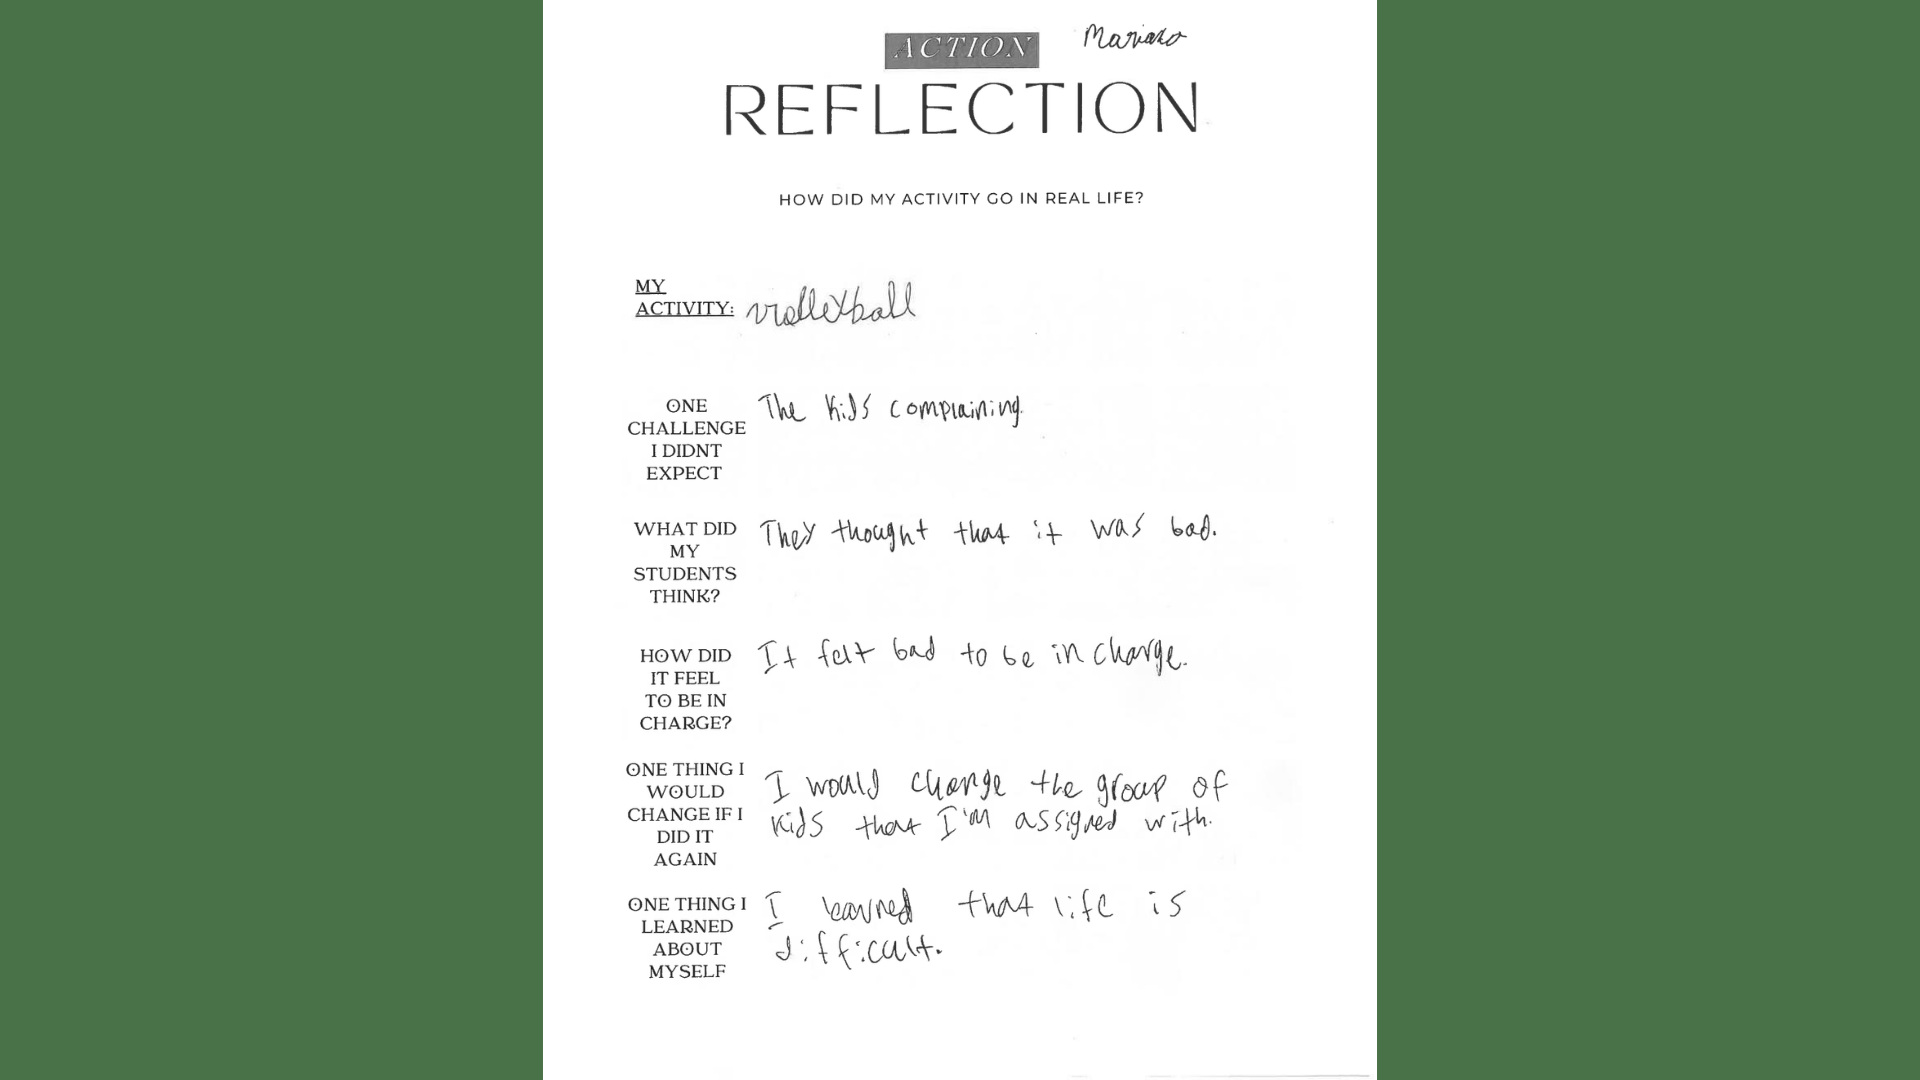 ACTION
Mariano
REFLECTION
HOW DID MY ACTIVITY GO IN REAL LIFE?
MY
ACTIVITY:
volleyball
ONE
CHALLENGE
I DIDNT
EXPECT
The kids complaining.
WHAT DID
MY
STUDENTS
THINK?
They thought that it was bad.
HOW DID
IT FEEL
TO BE IN
CHARGE?
It felt bad to be in charge.
ONE THING I
WOULD
CHANGE IF I
DID IT
AGAIN
I would change the group of
kids that I'm assigned with.
ONE THING I
LEARNED
ABOUT
MYSELF
I learned that life is
difficult.